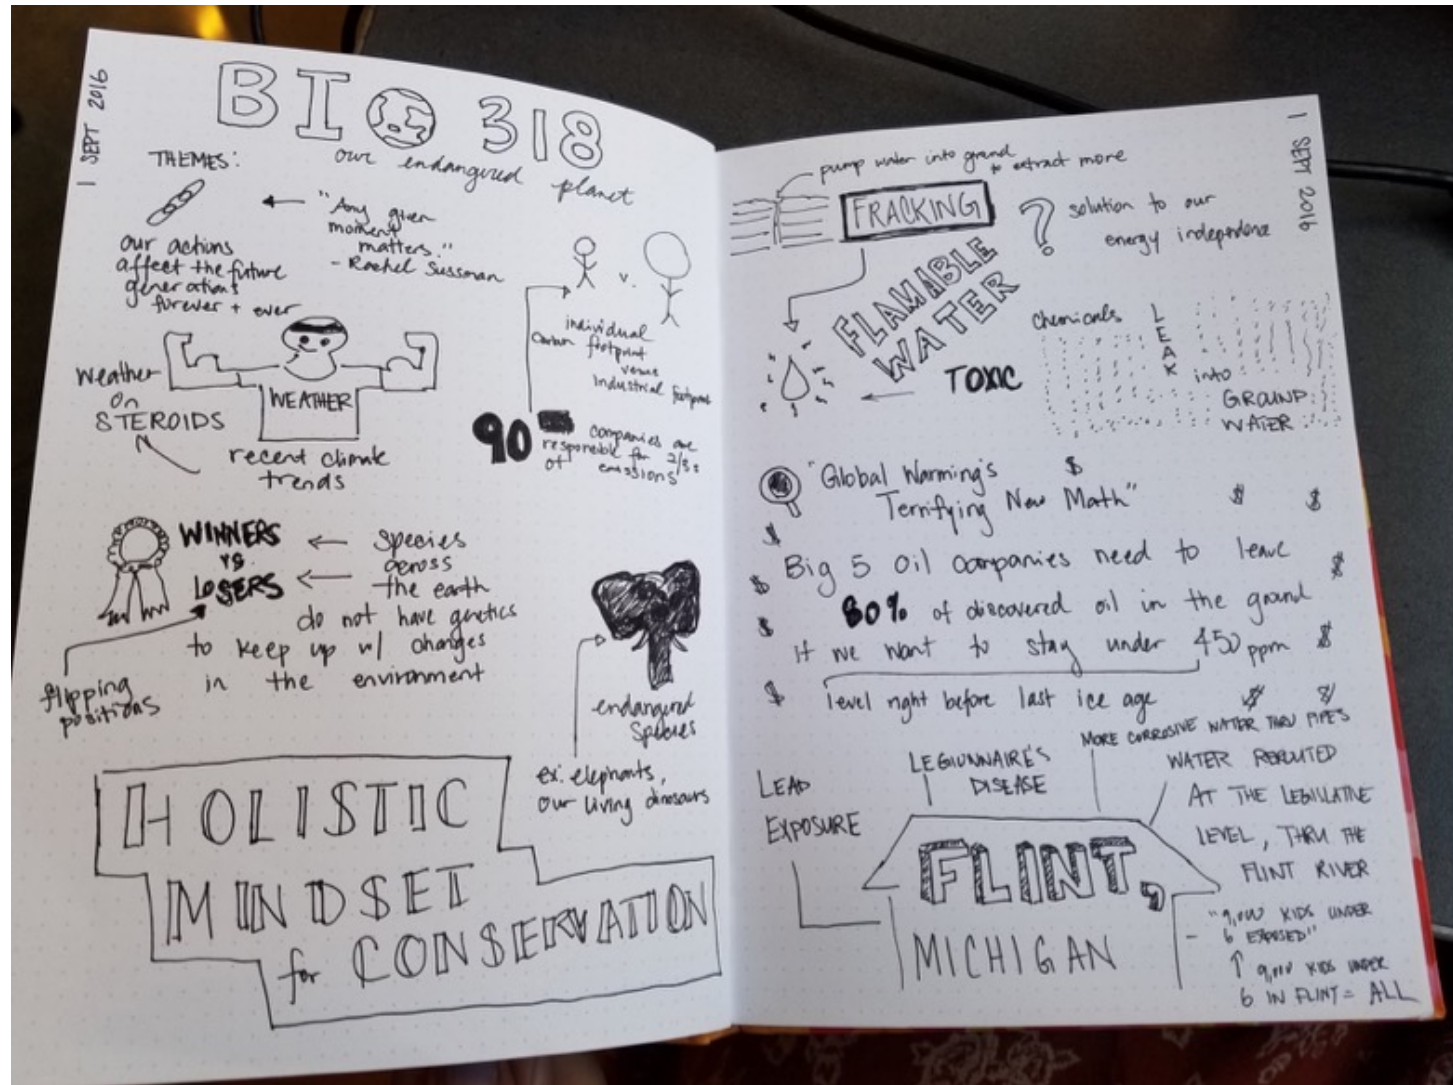 1 SEPT 2016
BIO 318
our endangered planet
THEMES:
our actions
affect the future
generations
forever + ever
"Any given
moment
matters."
- Rachel Sussman
v.
individual
carbon footprint
versus
industrial footprint
90 companies are
responsible for 2/3s
of emissions
Weather
on
STEROIDS
WEATHER
recent climate
trends
WINNERS
vs
LOSERS
species
across
the earth
do not have genetics
to keep up w/ changes
in the environment
flipping
positions
endangered
species
ex: elephants,
our living dinosaurs
HOLISTIC
MINDSET
for CONSERVATION
1 SEPT 2016
pump water into ground
to extract more
FRACKING
?
solution to our
energy independence
FLAMABLE
WATER
TOXIC
Chemicals
LEAK
into
GROUND
WATER
"Global Warming's
Terrifying New Math"
Big 5 Oil companies need to leave
80% of discovered oil in the ground
if we want to stay under 450 ppm
level right before last ice age
LEAD
EXPOSURE
LEGIONNAIRE'S
DISEASE
MORE CORROSIVE WATER THRU PIPES
WATER REROUTED
AT THE LEGISLATIVE
LEVEL, THRU THE
FLINT RIVER
FLINT,
MICHIGAN
- "9,000 KIDS UNDER
6 EXPOSED"
↑ 9,000 KIDS UNDER
6 IN FLINT = ALL